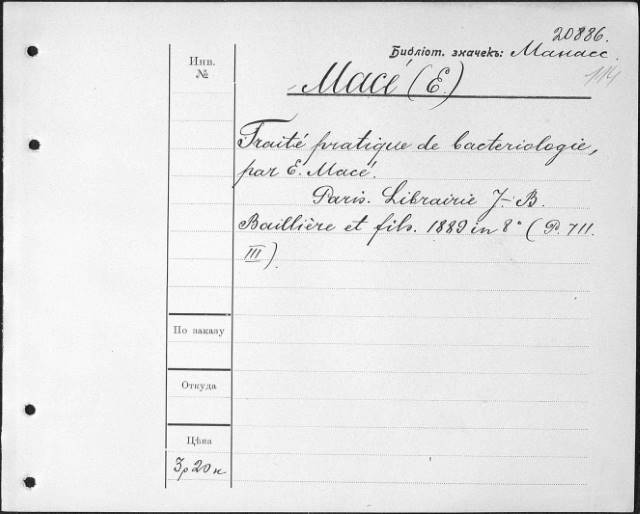 20886.
Библіот. значекъ: Манасс.
114
Инв.
№
Macé (E.)
Traité pratique de bacteriologie,
par E. Macé.
Paris. Librairie J-B.
Baillière et fils. 1889 in 8° (P. 711.
III).
По заказу
Откуда
Цѣна
3р 20к